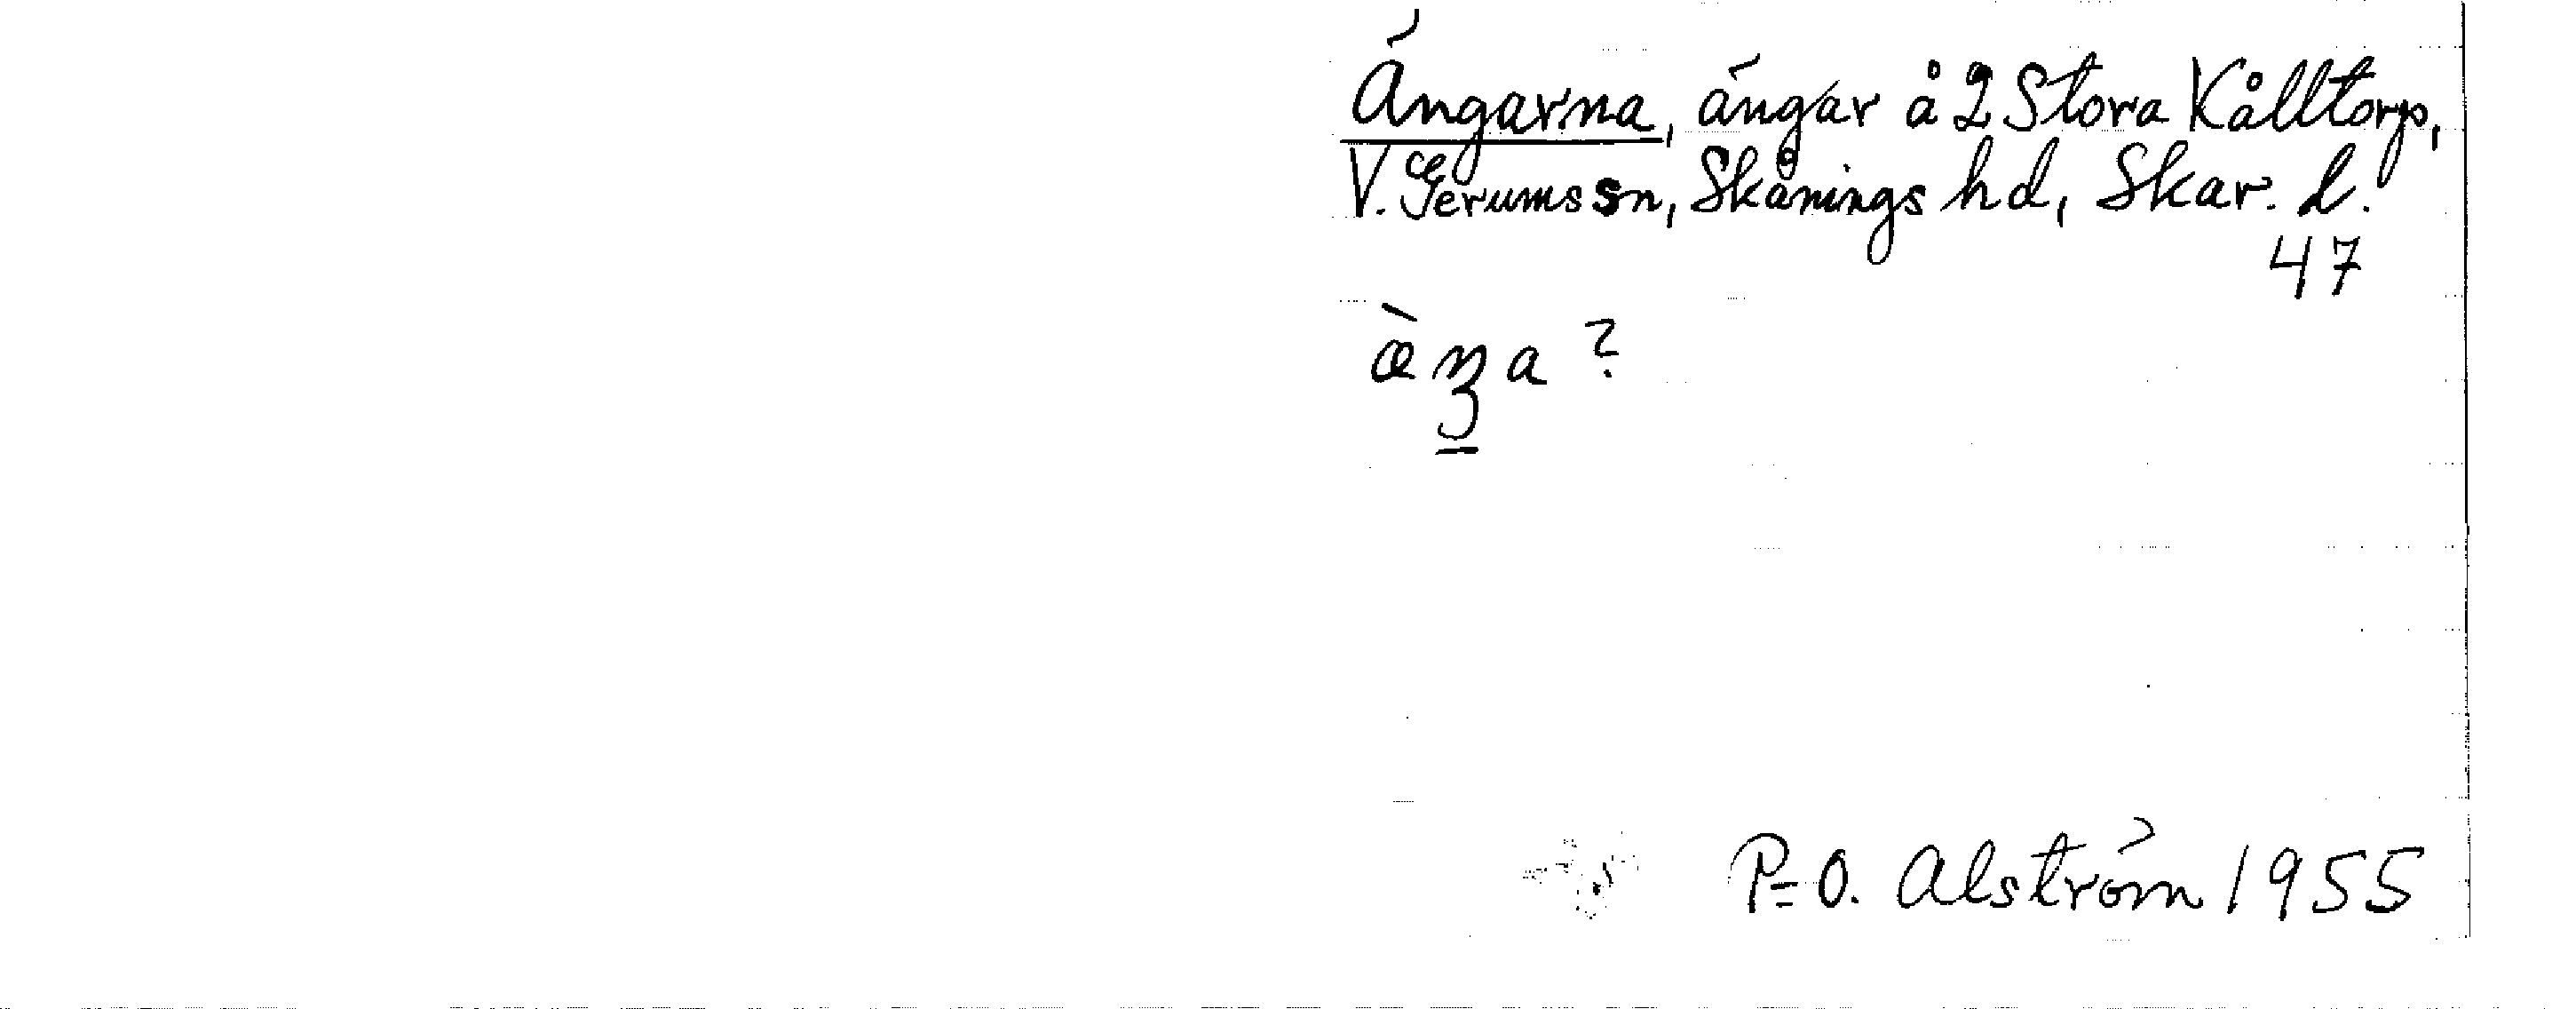 Ängarna, ängar å 2 Stora Kålltorp,
V. Gerums sn, Skånings hd, Skar. l.
47
?
P-O. Alström 1955